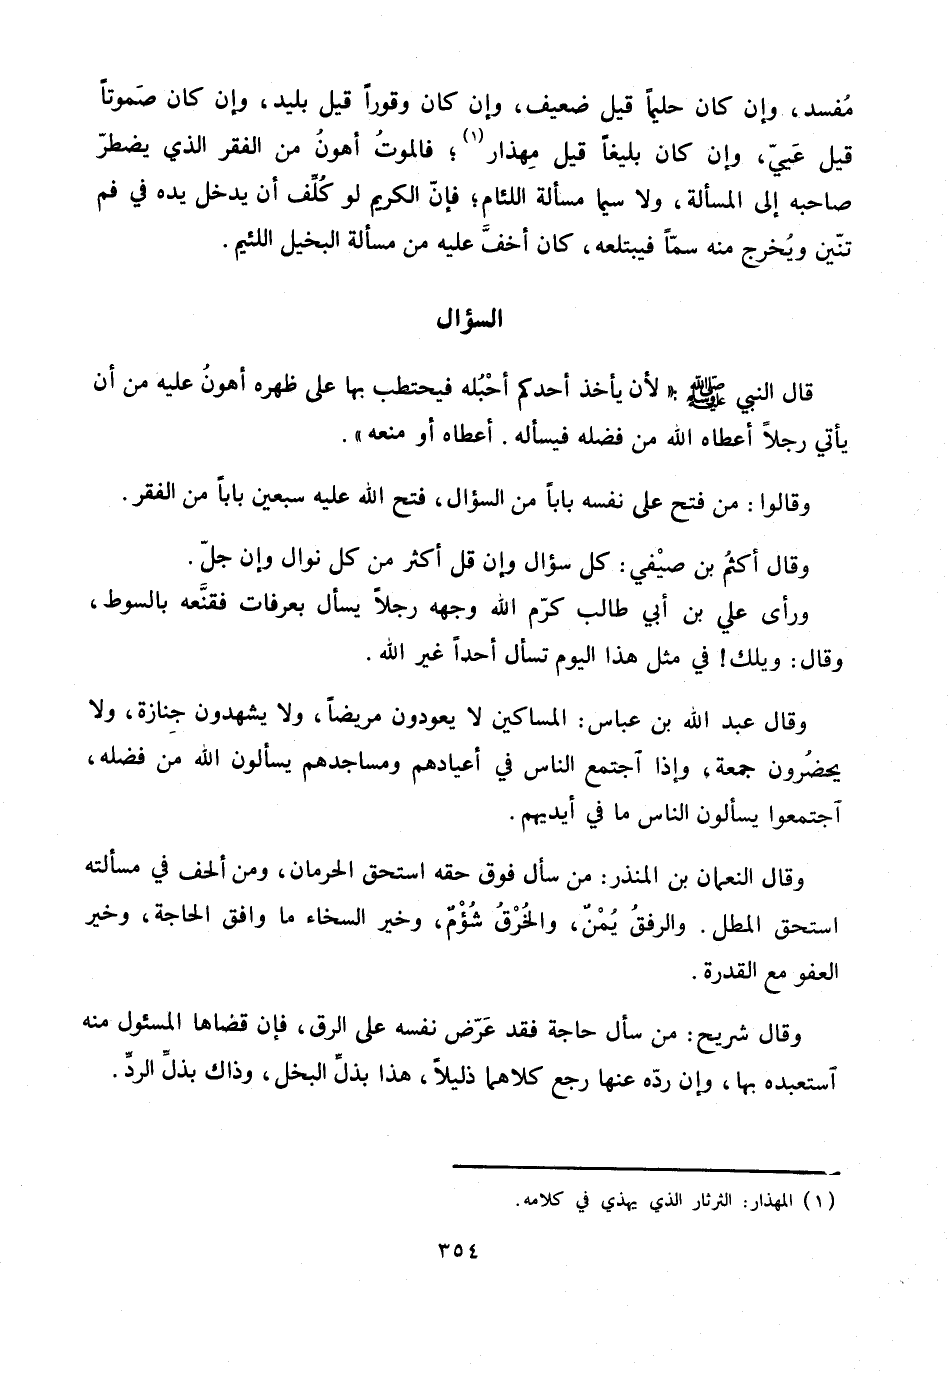 مُفسد، وإن كان حليماً قيل ضعيف، وإن كان وقوراً قيل بليد، وإن كان صَموتاً
قيل عَييّ، وإن كان بليغاً قيل مِهذار(١)؛ فالموتُ أهونُ من الفقر الذي يضطرّ
صاحبه إلى المسألة، ولا سيما مسألة اللئام؛ فإنّ الكريم لو كُلِّف أن يدخل يده في فم
تنّين ويُخرج منه سمّاً فيبتلعه، كان أخفَّ عليه من مسألة البخيل اللئيم.
السؤال
قال النبي ﷺ: « لأن يأخذ أحدكم أحْبُله فيحتطب بها على ظهره أهونُ عليه من أن
يأتي رجلاً أعطاه الله من فضله فيسأله. أعطاه أو منعه ».
وقالوا: من فتح على نفسه باباً من السؤال، فتح الله عليه سبعين باباً من الفقر.
وقال أكثمُ بن صيْفي: كل سؤال وإن قل أكثر من كل نوال وإن جلّ.
ورأى علي بن أبي طالب كرّم الله وجهه رجلاً يسأل بعرفات فقنَّعه بالسوط،
وقال: ويلك! في مثل هذا اليوم تسأل أحداً غير الله.
وقال عبد الله بن عباس: المساكين لا يعودون مريضاً، ولا يشهدون جِنازة، ولا
يحضُرون جمعة، وإذا ٱجتمع الناس في أعيادهم ومساجدهم يسألون الله من فضله،
ٱجتمعوا يسألون الناس ما في أيديهم.
وقال النعمان بن المنذر: من سأل فوق حقه استحق الحرمان، ومن ألحف في مسألته
استحق المطل. والرفقُ يُمْنٌ، والخُرْقُ شُؤْمٌ، وخير السخاء ما وافق الحاجة، وخير
العفو مع القدرة.
وقال شريح: من سأل حاجة فقد عَرّض نفسه على الرق، فإن قضاها المسئول منه
ٱستعبده بها، وإن ردّه عنها رجع كلاهما ذليلاً، هذا بذلِّ البخل، وذاك بذلِّ الردِّ.
(١) المهذار: الثرثار الذي يهذي في كلامه.
٣٥٤